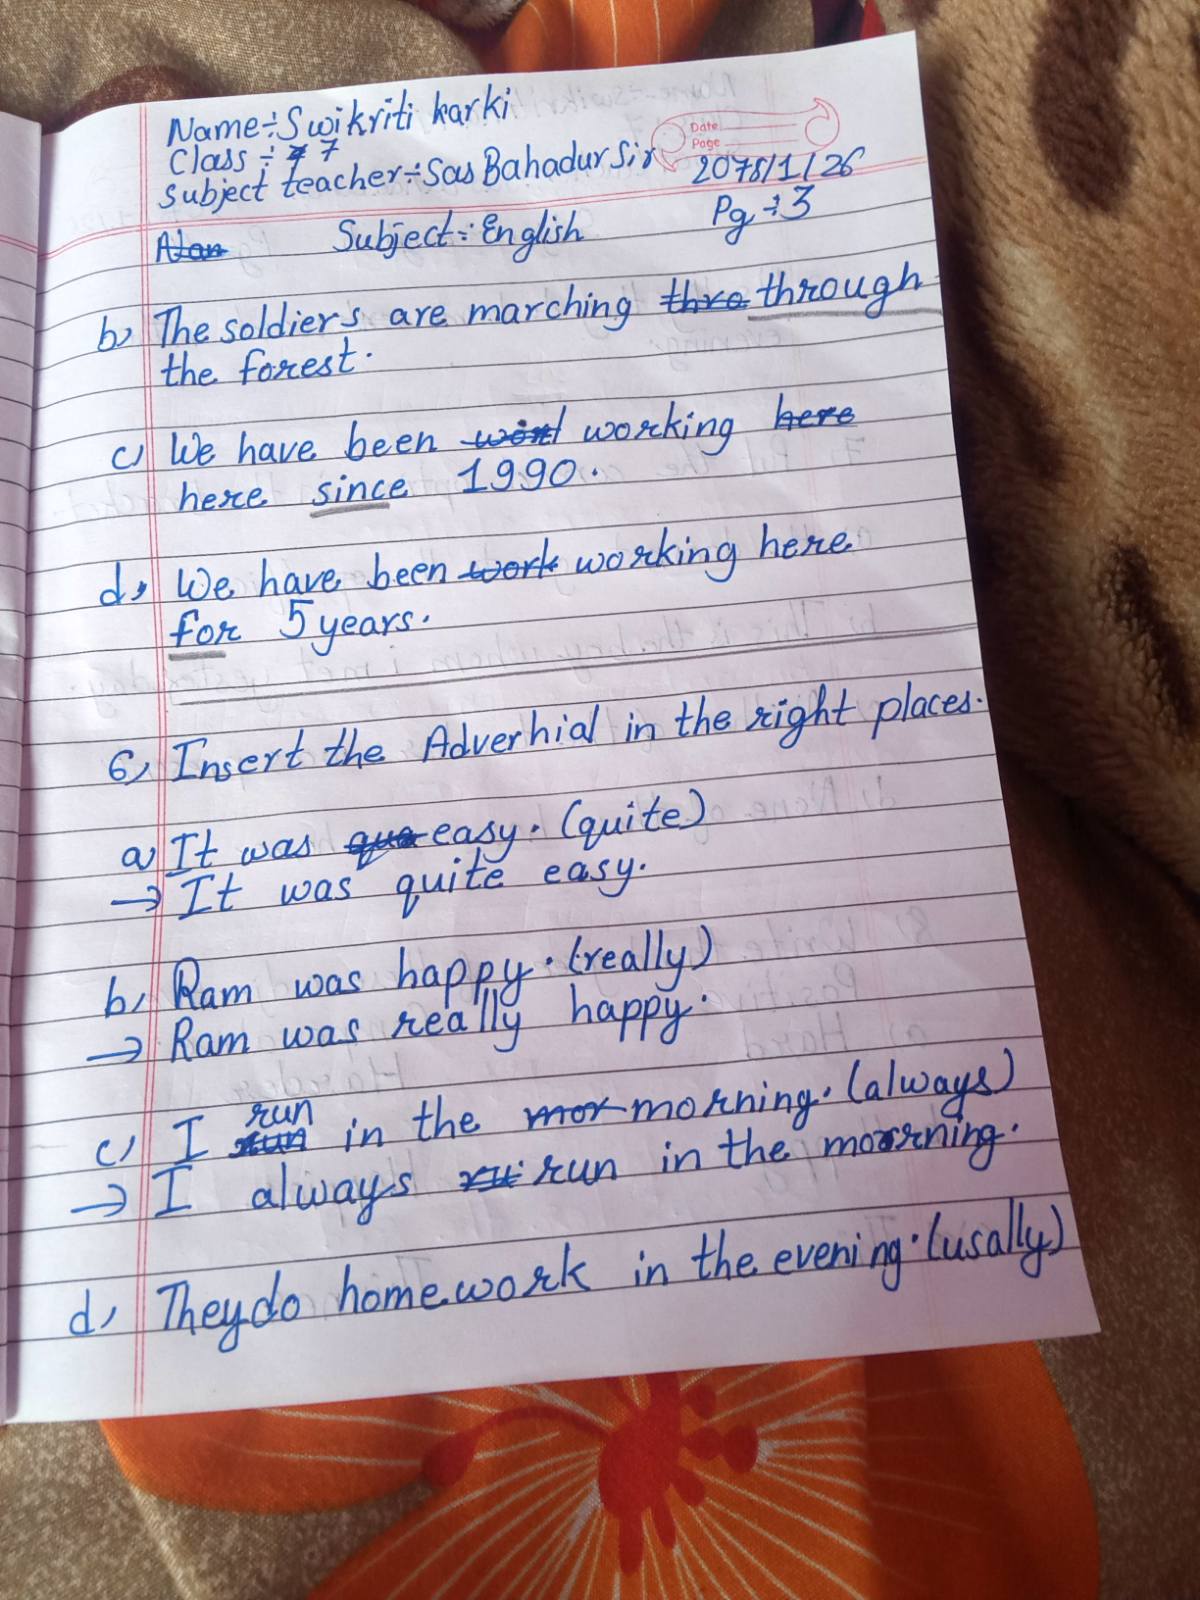 Name÷Swikriti karki
Class ÷ 7
Subject teacher÷Sas Bahadur Sir
Date
Page
2078/1/26
Pg ÷3
Subject÷English
b, The soldiers are marching through
the forest.
c, We have been working
here since 1990.
d, We have been working here
for 5 years.
6, Insert the Adverhial in the right places.
a, It was easy. (quite)
→ It was quite easy.
b, Ram was happy. (really)
→ Ram was really happy.
c, I run in the morning. (always)
→ I always run in the morning.
d, They do homework in the evening. (usally)